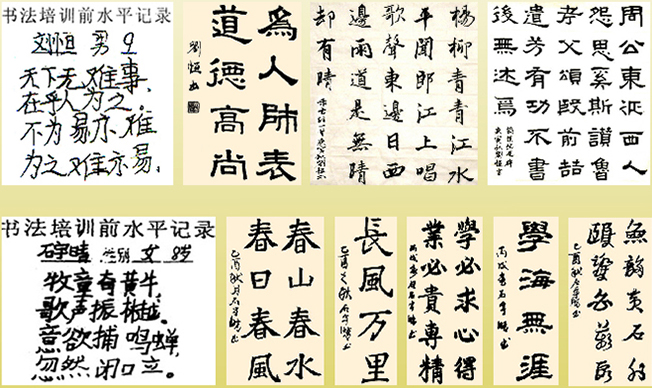 书法培训前水平记录
刘恒 男 9
天下无难事,
在乎人为之.
不为易亦难
为之难亦易、
爲人師表
道德高尚
劉恒书
楊柳青青江水
平聞郎江上唱
歌聲東邊日西
邊雨道是無晴
却有晴
周公東征西人
怨思奚斯讚魯
考父頌殷前喆
遺芳有功不書
後無述焉
书法培训前水平记录
石宇晴 性别 女 8岁
牧童奇黄牛,
歌声振林樾,
意欲捕鸣蝉
忽然闭口立。
春山春水
春日春風
長風万里
學必求心得
業必貴專精
學海無涯